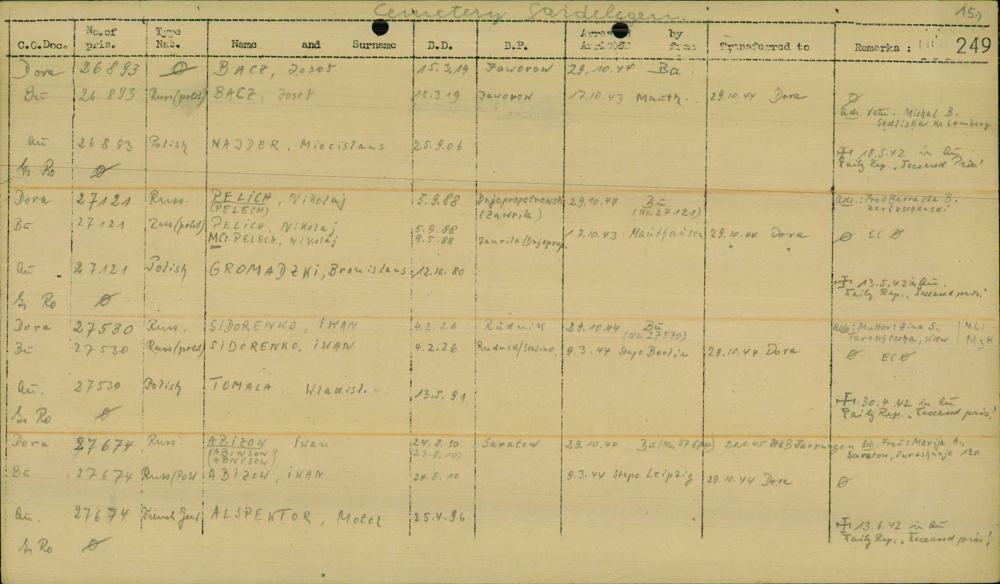 Cemetery Gardelegen. 159
C.C.Doc. No. of pris. Type Nat. Name and Surname B.D. B.P. Arrested Arrived by from Transferred to Remarks : 249
Dora 26893 Ø BACZ, Josef 15.3.19 Jaworow 29.10.44 Bu
Bu 26893 Russ(polit) BACZ, Josef 15.3.19 Jaworow 17.10.43 Mauth. 29.10.44 Dora Ø
adr. Vater: Michal B.
Kr. Lemberg
Au 26893 Polish NAJDER, Miecislaus 25.9.06 18.5.42 in Au
Daily Rep. "Deceased Pris."
Gr Ro Ø
Dora 27121 Russ. PELICH, Nikolaj 5.9.88 Dnjepropetrowsk 29.10.44 Bu adr.: Frau B.
(PELECH) (Zawrila) (No. 27121)
Bu 27121 Russ(polit) PELICH, Nikolaj 5.9.88 17.10.43 Mauthausen 29.10.44 Dora Ø EC Ø
PELECH, Nikolaj 9.5.88
Au 27121 Polish GROMADZKI, Bronislaus 12.10.80 13.5.42 in Au.
Daily Rep. "Deceased pris."
Gr Ro Ø
Dora 27530 Russ. SIDORENKO, IWAN 4.2.26 Rudnik 29.10.44 Bu adr.: Mutter: Zina S.,
(No. 27530)
Bu 27530 Russ(polit) SIDORENKO, IWAN 4.2.26 Rudnik/Stalino 9.3.44 Stapo Berlin 29.10.44 Dora Ø EC Ø
Au. 27530 Polish TOMALA, 13.5.91 30.4.42 in Au
Daily Rep. "Deceased pris."
Gr Ro Ø
Dora 27674 Russ. ABIZOW Iwan 24.8.10 Saratow 29.10.44 Bu (No 27674) 21.1.45 adr. Frau: Marija A.,
(ABINSOW) 23.8.10) Saratow, 120
(ABNISOW)
Bu 27674 Russ/Polit ABIZOW, IWAN 24.8.10 9.3.44 Stapo Leipzig 29.10.44 Dora Ø
Au. 27674 French Jew ALSPEKTOR, Motel 25.4.96 13.6.42 in Au
Daily Rep. "Deceased pris."
Gr Ro Ø